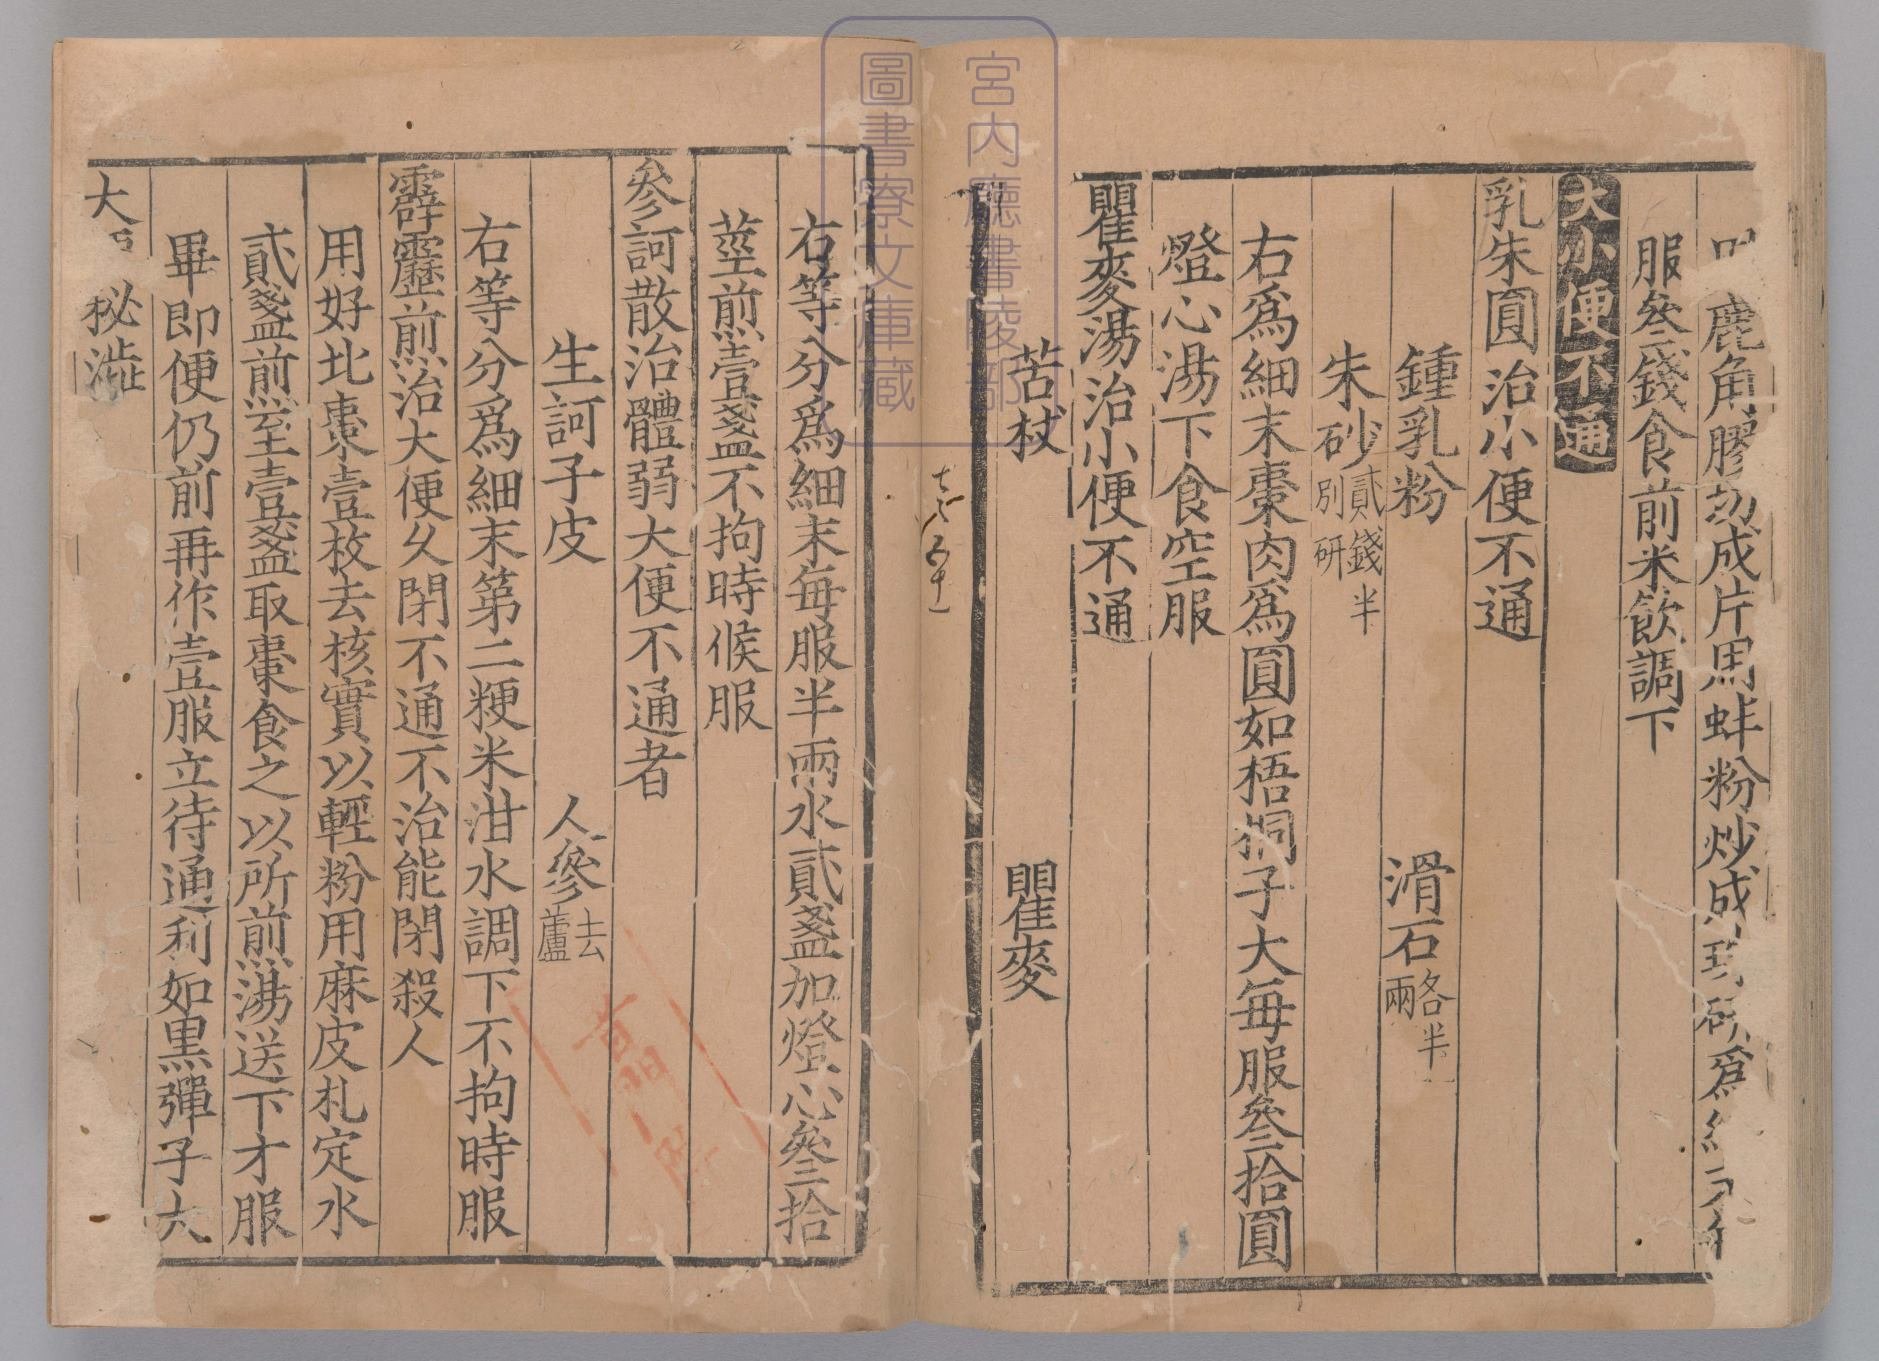 鹿角膠切成片用蚌粉炒成珠研爲細末每
服叁錢食前米飲調下
大小便不通
乳朱圓治小便不通
鍾乳粉　滑石各半兩
朱砂貳錢半別研
右爲細末棗肉爲圓如梧桐子大每服叁拾圓
燈心湯下食空服
瞿麥湯治小便不通
苦杖　瞿麥
右等分爲細末每服半兩水貳盞加燈心叁拾
莖煎壹盞不拘時候服
參訶散治體弱大便不通者
生訶子皮　人參去蘆
右等分爲細末第二粳米泔水調下不拘時服
霹靂煎治大便久閉不通不治能閉殺人
用好北棗壹枚去核實以輕粉用麻皮札定水
貳盞煎至壹盞取棗食之以所煎湯送下才服
畢即便仍前再作壹服立待通利如黑彈子大
大 秘澁
宮内廳書陵部
圖書寮文庫藏